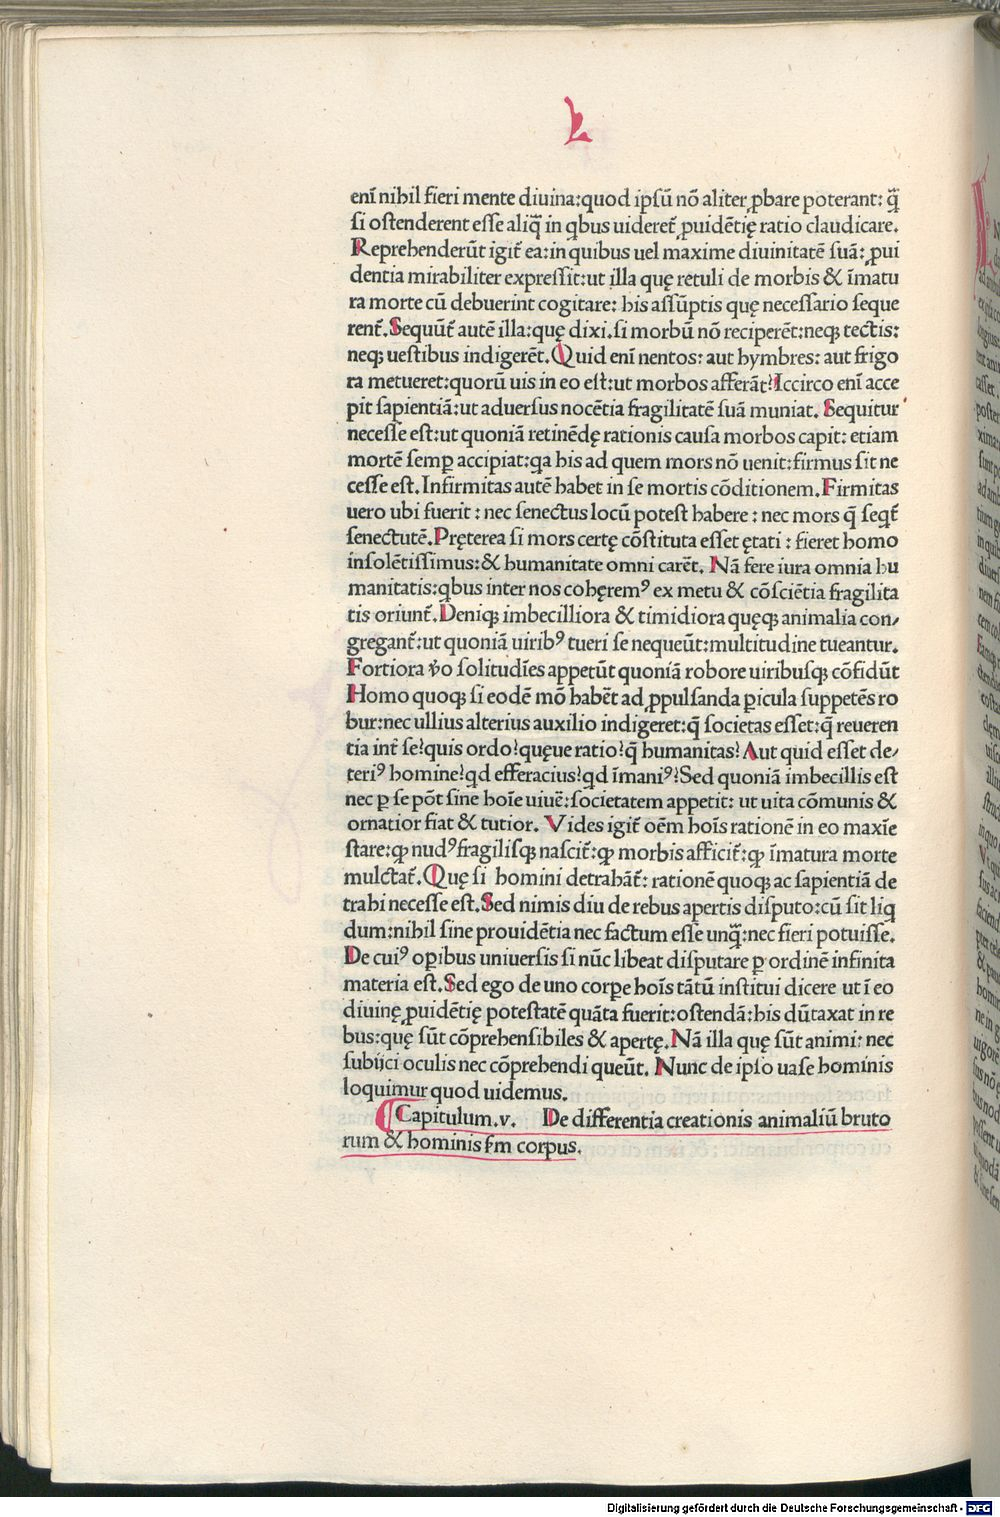 L
enī nihil fieri mente diuina:quod ipſū nō aliter ꝓbare poterant: q̃
ſi oſtenderent eſſe aliq̃ in qbus uideret̄ ꝓuidētię ratio claudicare.
Reprehenderūt igit̄ ea:in quibus uel maxime diuinitatē ſuā:ꝓui
dentia mirabiliter expreſſit:ut illa quę retuli de morbis & īmatu
ra morte cū debuerint cogitare: his aſſūptis quę neceſſario ſeque
rent̄.Sequūt̄ autē illa:quę dixi.ſi morbū nō reciperēt:neqꝫ tectis:
neqꝫ ueſtibus indigerēt.Quid enī uentos: aut hymbres: aut frigo
ra metueret:quorū uis in eo eſt:ut morbos afferāt?Iccirco enī acce
pit ſapientiā:ut aduerſus nocētia fragilitatē ſuā muniat. Sequitur
neceſſe eſt:ut quoniā retinēdę rationis cauſa morbos capit: etiam
mortē ſemꝑ accipiat:qa his ad quem mors nō uenit:firmus ſit ne
ceſſe eſt.Infirmitas autē habet in ſe mortis cōditionem.Firmitas
uero ubi fuerit : nec ſenectus locū poteſt habere : nec mors q̄ ſeqt̄
ſenectutē.Pręterea ſi mors certę cōſtituta eſſet ętati : fieret homo
inſolētiſſimus:& humanitate omni carēt. Nā fere iura omnia hu
manitatis:qbus inter nos cohęremꝰ ex metu & cōſciētia fragilita
tis oriunt̄.Deniqꝫ imbecilliora & timidiora quęqꝫ animalia con⸗
gregant̄:ut quoniā uiribꝰ tueri ſe nequeūt:multitudine tueantur.
Fortiora ṽo ſolitudīes appetūt quoniā robore uiribuſqꝫ cōfidūt
Homo quoqꝫ ſi eodē mō habēt ad ꝓpulſanda ꝑicula ſuppetēs ro
bur:nec ullius alterius auxilio indigeret:q̄ ſocietas eſſet:q̄ reueren
tia int̄ ſe?quis ordo?quęue ratio?q̄ humanitas? Aut quid eſſet de⸗
teriꝰ homine?qd efferacius?qd īmaniꝰ?Sed quoniā imbecillis eſt
nec ꝑ ſe pōt ſine hoīe uiuē:ſocietatem appetit: ut uita cōmunis &
ornatior fiat & tutior. Vides igit̄ oēm hoīs rationē in eo maxīe
ſtare:ꝙ nudꝰ fragiliſqꝫ naſcit̄:ꝙ morbis afficit̄:ꝙ īmatura morte
mulctat̄.Quę ſi homini detrahāt̄: rationē quoqꝫ ac ſapientiā de
trahi neceſſe eſt.Sed nimis diu de rebus apertis diſputo:cū ſit liq
dum:nihil ſine prouidētia nec factum eſſe unq̃:nec fieri potuiſſe.
De cuiꝰ oꝑibus uniuerſis ſi nūc libeat diſputare ꝑ ordinē infinita
materia eſt.Sed ego de uno corꝑe hoīs tātū inſtitui dicere ut ī eo
diuinę ꝓuidētię poteſtatē quāta fuerit:oſtendā:his dūtaxat in re
bus:quę ſūt cōprehenſibiles & apertę.Nā illa quę ſūt animi: nec
ſubijci oculis nec cōprehendi queūt. Nunc de ipſo uaſe hominis
loquimur quod uidemus.
Capitulum.v. De differentia creationis animaliū bruto
rum & hominis ẜm corpus.
Digitalisierung gefördert durch die Deutsche Forschungsgemeinschaft - DFG